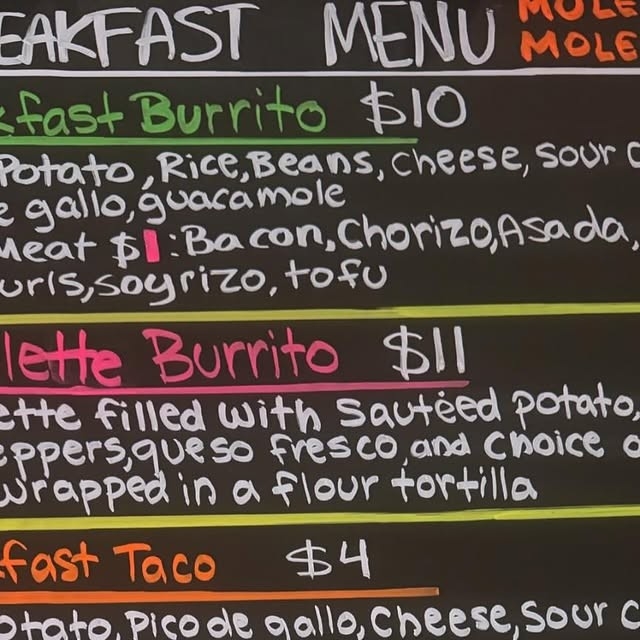 EAKFAST MENU
MOLE
MOLE
kfast Burrito $10
Potato, Rice, Beans, Cheese, sour c
e gallo, guacamole
Meat $1: Bacon, Chorizo, Asada,
urls, soyrizo, tofu
lette Burrito $11
ette filled with sautéed potato,
eppers, queso fresco, and choice o
wrapped in a flour tortilla
fast Taco $4
otato, Pico de gallo, Cheese, Sour c